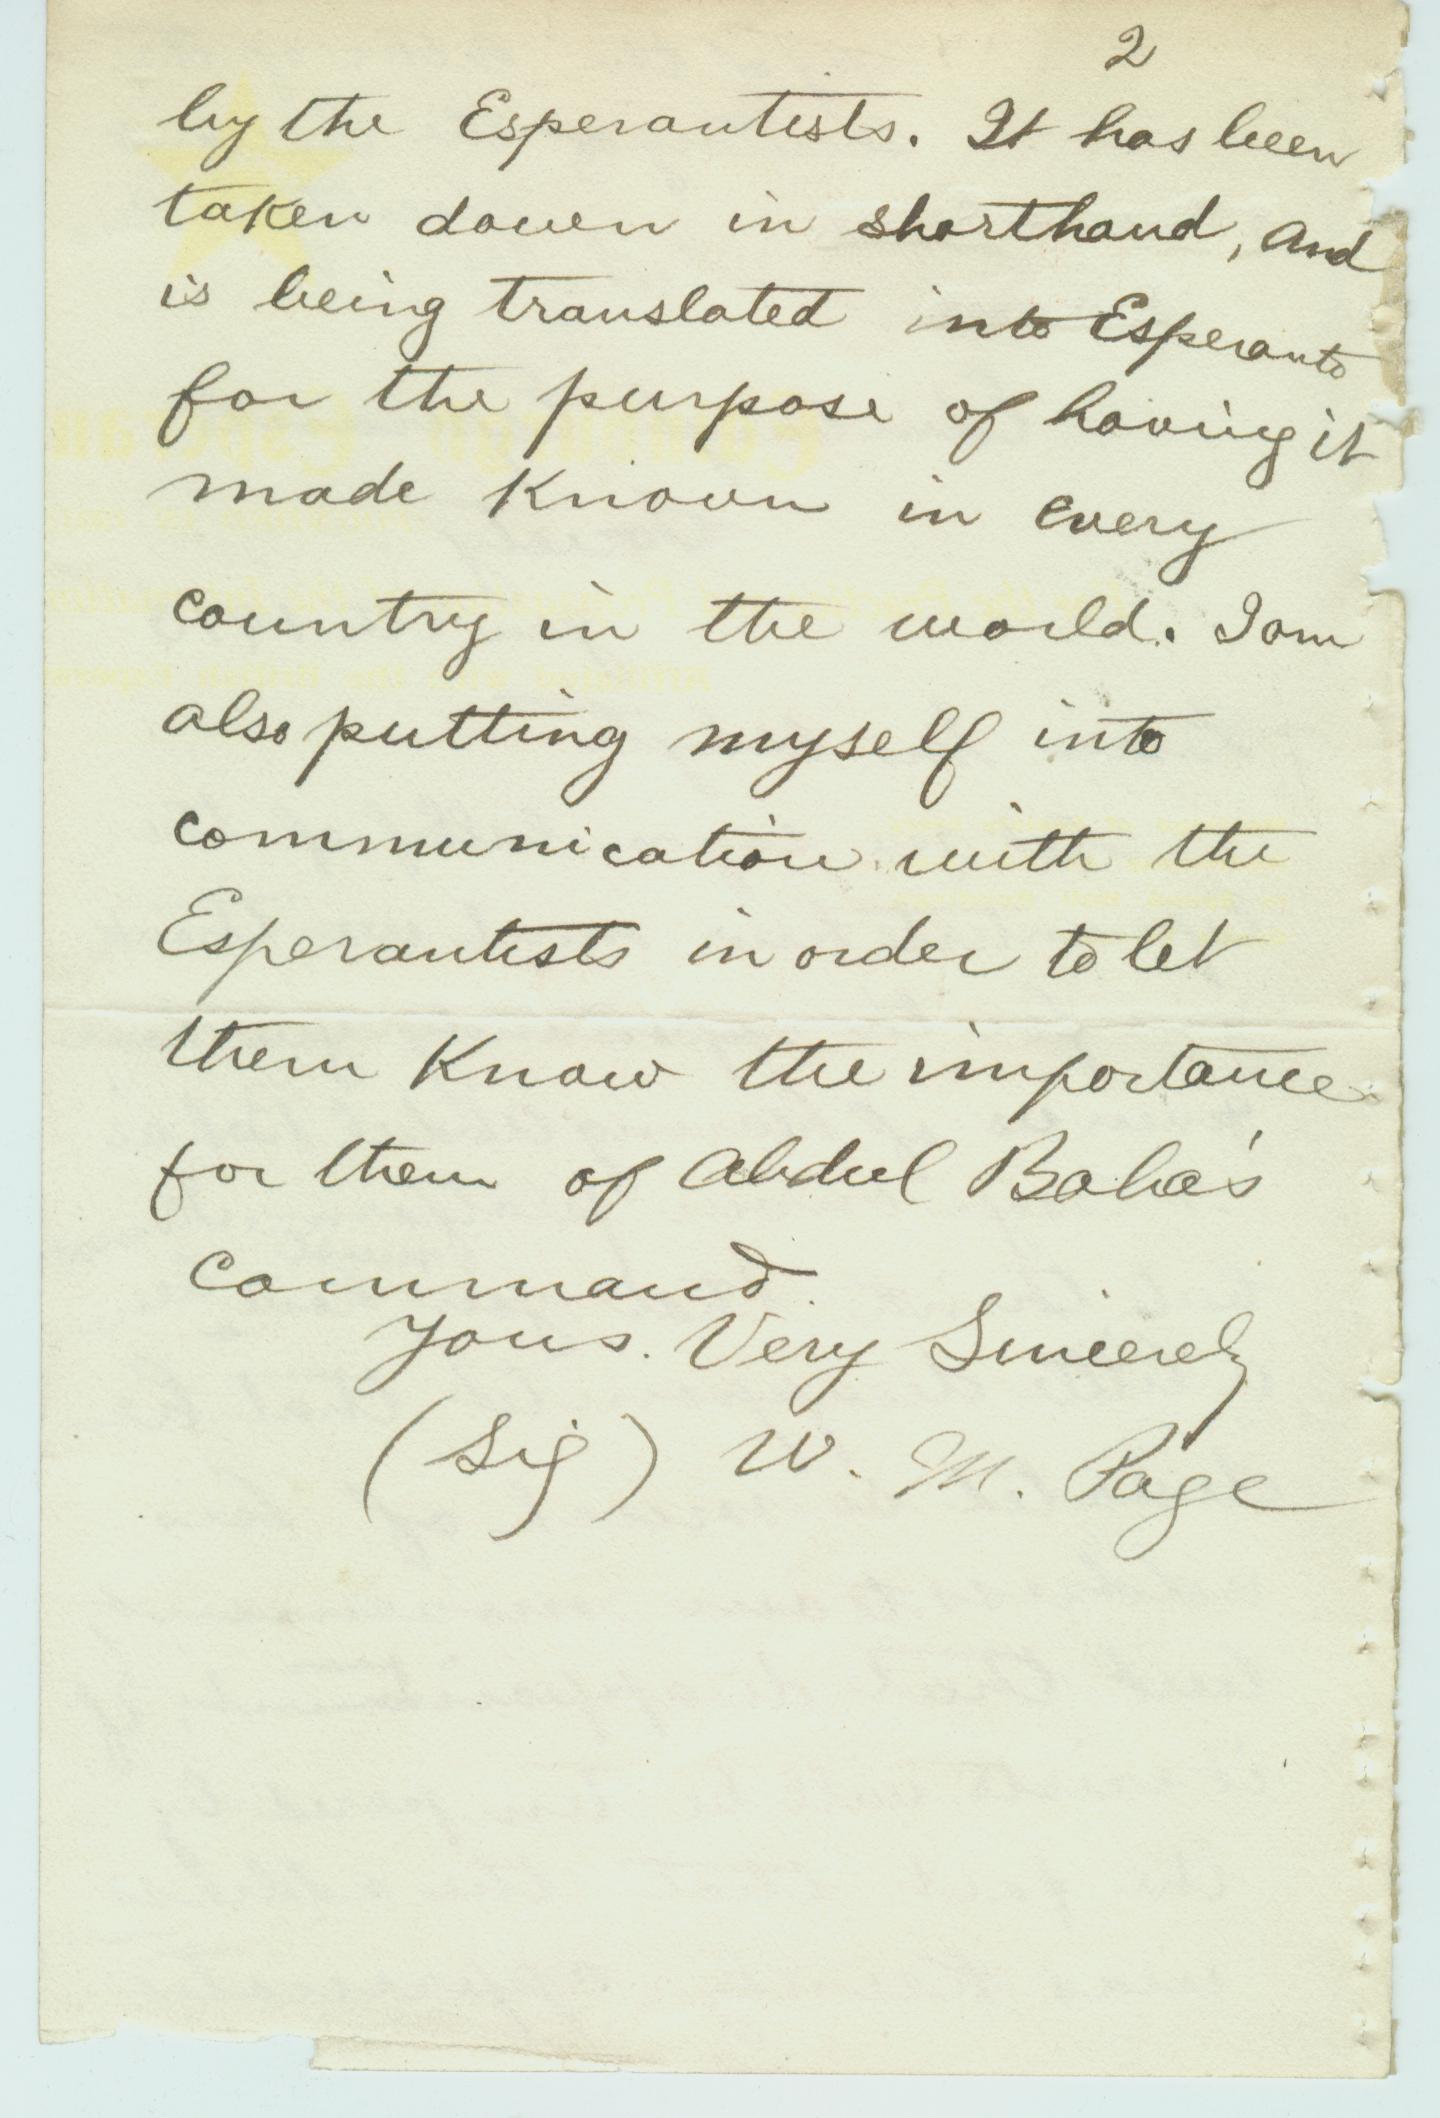 2
by the Esperantists. It has been
taken down in shorthand, and
is being translated into Esperanto
for the purpose of having it
made known in every
country in the world. I am
also putting myself into
communication with the
Esperantists in order to let
them know the importance
for them of Abdul Baha's
command.
Yours. Very Sincerely
(Sig) W. M. Page